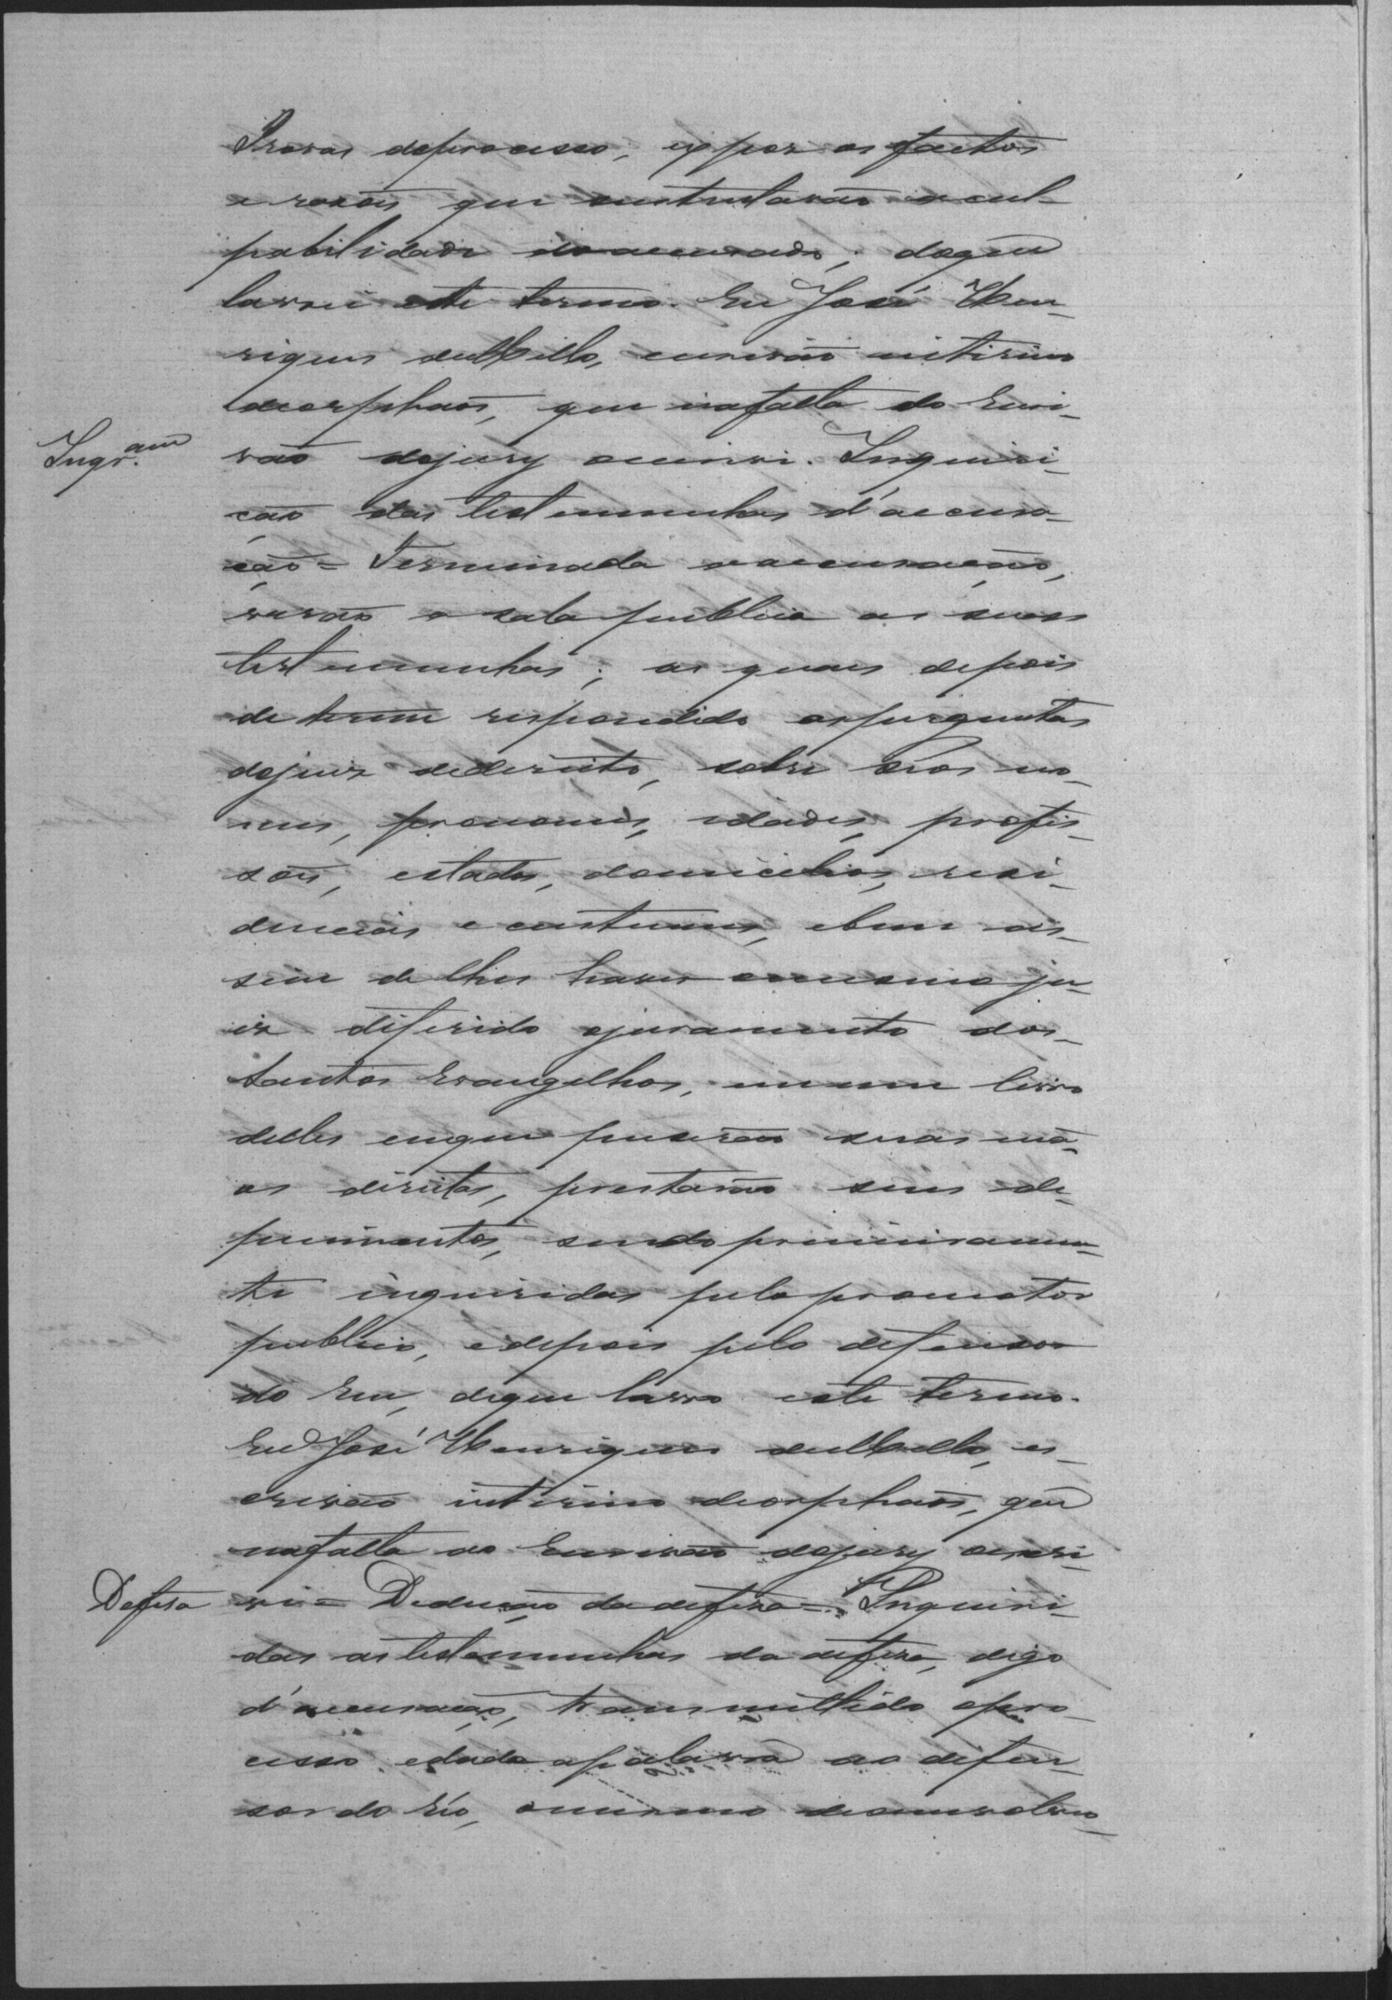 Provas do processo, expoz os factos
e rasões que sustentavão a cul-
pabilidade do accusado; do que
lavrei este termo. Eu José Hen-
riques de Mello, escrivão interino
de orphaõs, que na falta do Escri-
Inqr.am
vaõ do jury escrevi. Inquiri-
ção das testemunhas d'accusa-
ção = Terminada a accusação,
vierão a sala publica as suas
testemunhas; as quaes depois
de terem respondido as perguntas
do juiz de direito, sobre seos no-
mes, pronomes, idades, profis-
soẽs, estados, domicilios, resi-
dencias e custumes, e bem as-
sim de lhes haver o mesmo ju-
iz diferido o juramento dos
Santos Evangelhos, em um livro
delles em que puserão suas mã-
os direitas, prestarão seus de-
poimentos, sendo primeiramen-
te inqueridas pelo promotor
publico, e depois pelo defensor
do Reu, do que lavro este termo.
Eu José Henriques de Mello, es-
crivão interino de orphaõs, que
na falta do Escrivão do jury escre
Defesa
vi = Deducção da defesa = Inquiri-
das as testemunhas da defesa, digo
d'accusação, transmittido o pro-
cesso e dada a palavra ao defen-
sor do Réo, o mesmo desenvolveo